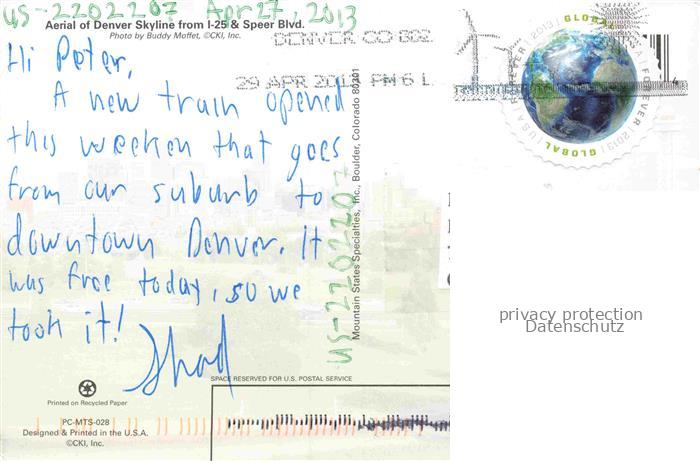 US-2202207 Apr 27, 2013
Aerial of Denver Skyline from I-25 & Speer Blvd.
Photo by Buddy Moffet, ©CKI, Inc.
DENVER CO 802
29 APR 2013 PM 6 L
GLOBAL
USA FOREVER 2013
GLOBAL
Hi Peter,
A new train opened
this weeken that goes
from our suburb to
downtown Denver. It
was free today, so we
took it!
Mountain States Specialties, Inc., Boulder, Colorado 80301
US-2202207
privacy protection
Datenschutz
SPACE RESERVED FOR U.S. POSTAL SERVICE
Printed on Recycled Paper
PC-MTS-028
Designed & Printed in the U.S.A.
©CKI, Inc.